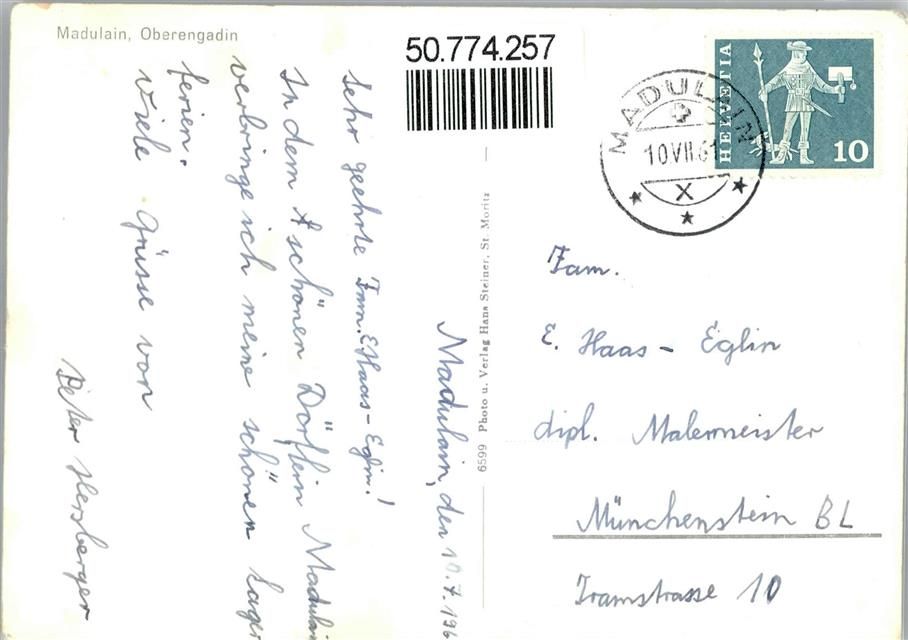 Madulain, Oberengadin
50.774.257
HELVETIA
10
MADULAIN
10.VII.61
X
6599 Photo u. Verlag Hans Steiner, St. Moritz
Madulain, den 10.7.196
Sehr geehrte Fam. E. Haas-Eglin!
In dem schönen Dörflein Madulai
verbringe ich meine schönen Lager
ferien.
Viele Grüsse von
Peter Hersberger
Fam.
E. Haas - Eglin
dipl. Malermeister
Münchenstein BL
Tramstrasse 10